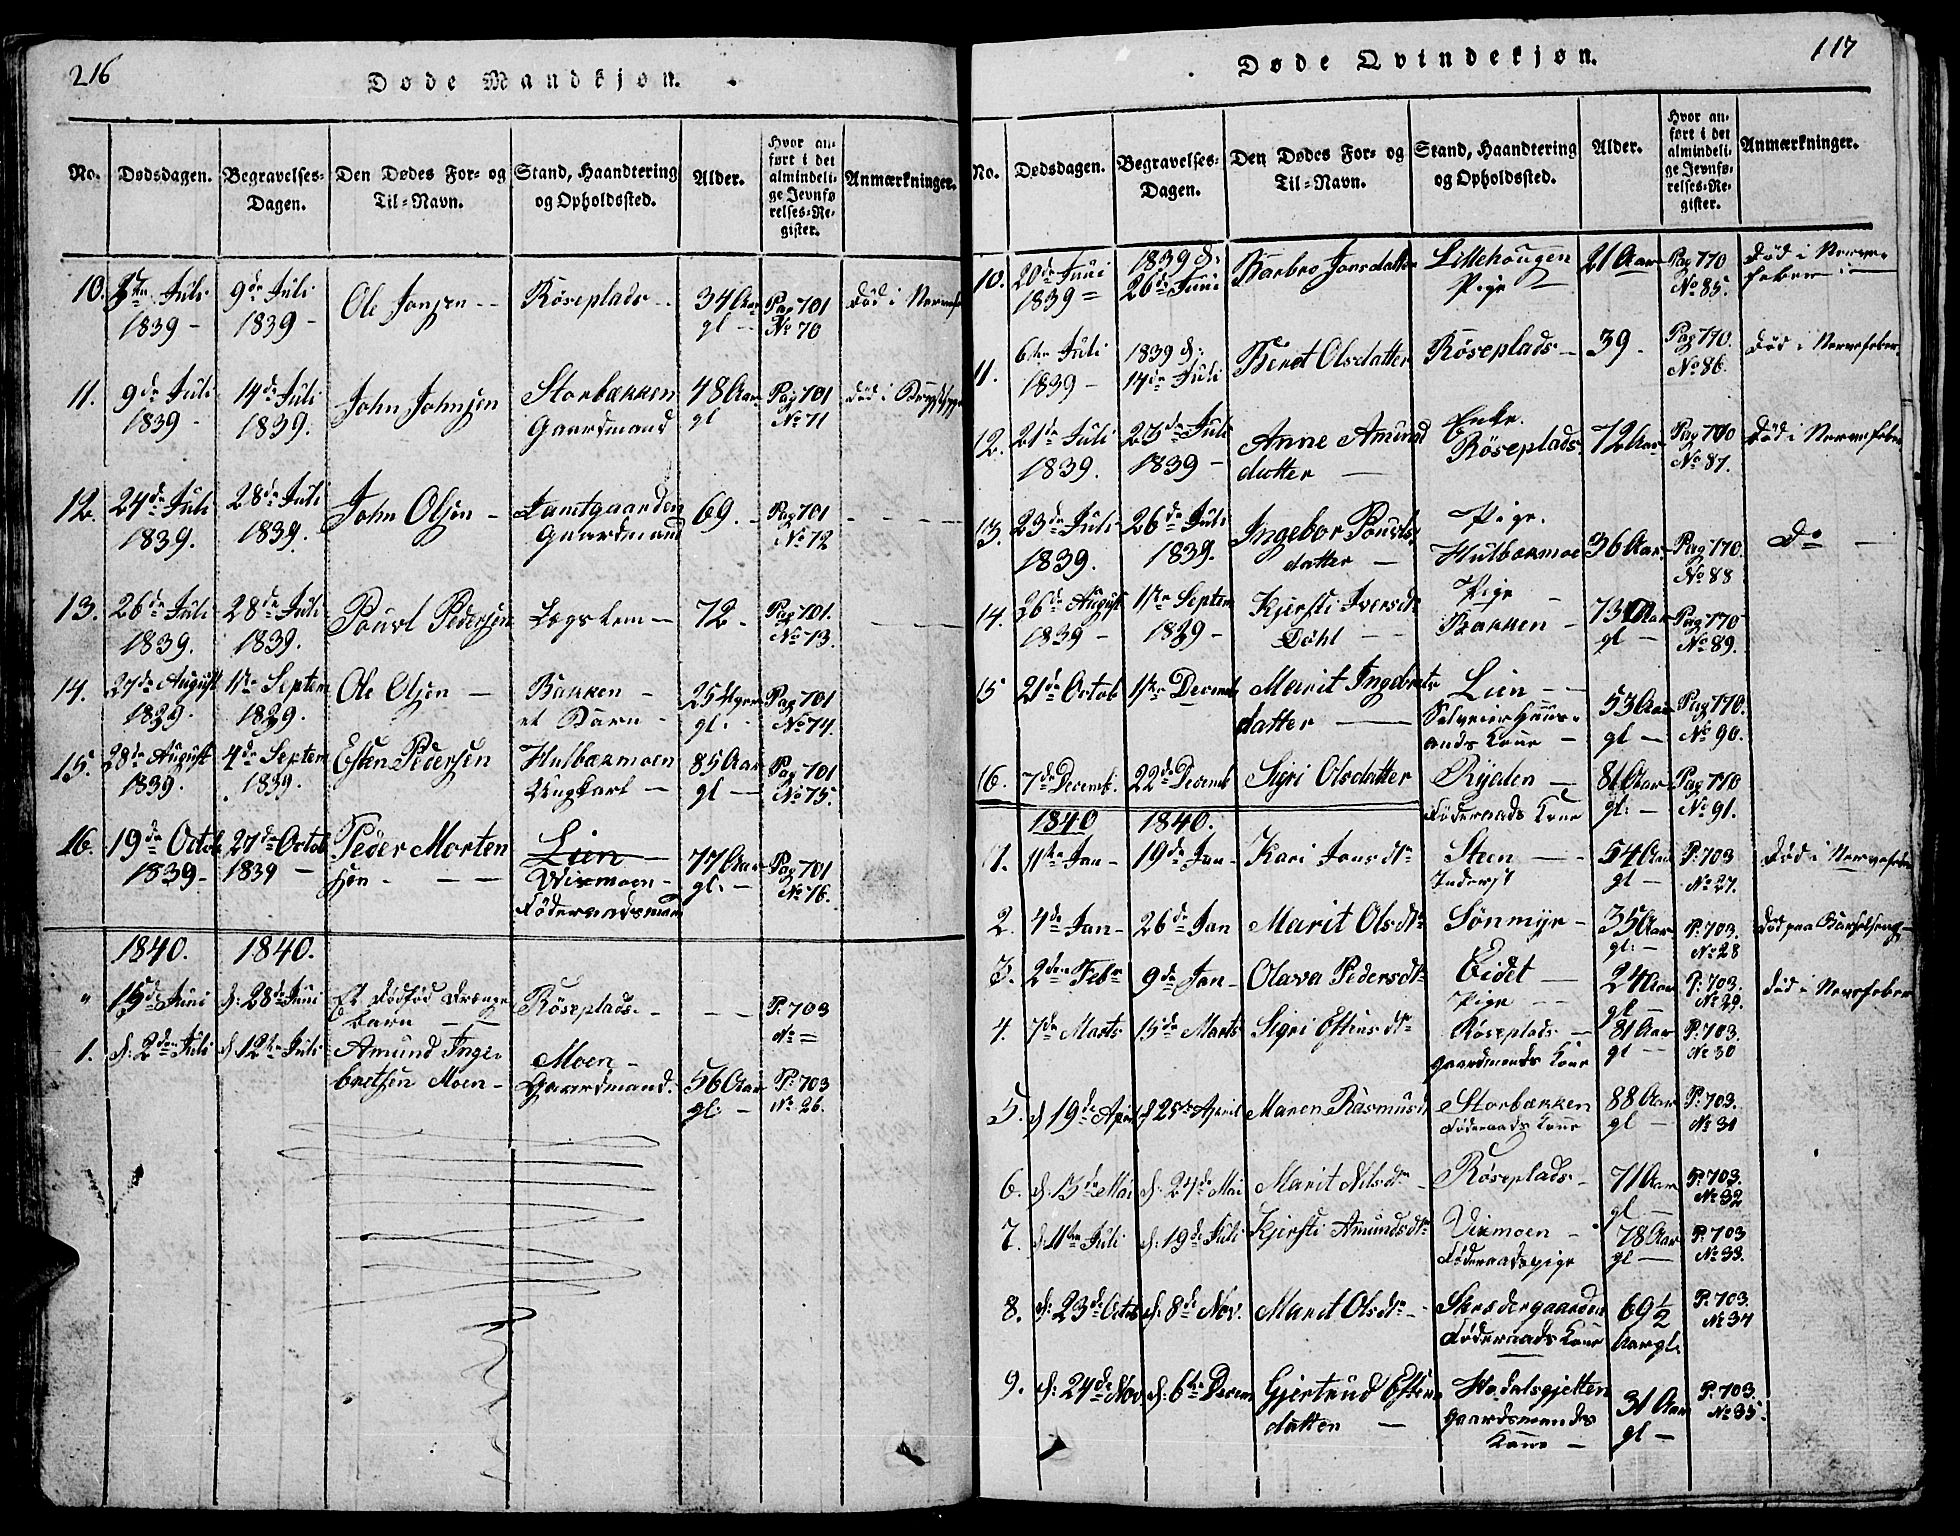 216
Døde Mandkjøn.
No.
Dødsdagen.
Begravelses-
Dagen.
Den Dødes For- og
Til-Navn.
Stand, Haandtering
og Opholdssted.
Alder.
Hvor an-
ført i det
almindeli-
ge Jevnfø-
relses-Re-
gister.
Anmærkninger.
10.
Juli
1839 -
9de Juli
1839 -
Ole Jonsen - -
Røseplads - -
34 Aar
gl -
Pag 701
No 70
død i
11.
9de Juli
1839 -
14de Juli
1839.
John Johnsen
Storbækken
Gaardmand
48 Aar
gl
Pag 701
No 71
død i
12.
24de Juli
1839.
28de Juli
1839.
John Olsen -
Jamtgaarden
Gaardmand
69. -
Pag 701
No 72
13.
26de Juli
1839.
28de Juli
1839.
Pouvl Pedersen
Lægdslem -
72 -
Pag 701.
No 73.
14.
27de August
1839.
1ste Septem
1839.
Ole Olsen -
Bakken -
et Barn -
25 Uger
gl: -
Pag 701
No 74.
15.
28de August
1839.
4de Septem
1839.
Esten Pedersen
Hulbækmoen
Ungkarl -
85 Aar
gl -
Pag 701
No 75.
16.
19de Octob
1839 -
27de Octob
1839 -
Peder Morten
sen - - -
Lien -
Vixmoen -
Føderaadsmand
77 Aar
gl: -
Pag 701
No 76.
1840.
1840.
"
15de Juni
d: 28de Juni
Et dødfød Drenge
barn - -
Røseplads. -
P: 703
No =
1.
d: 2den Juli
d 12te Juli
Amund Inge-
bretsen Moen -
Moen -
Gaardmand.
56 Aar
gl: -
P: 703
No 26.
117
Døde Qvindekjøn.
No.
Dødsdagen.
Begravelses-
Dagen.
Den Dødes For- og
Til-Navn.
Stand, Haandtering
og Opholdssted.
Alder.
Hvor an-
ført i det
almindeli-
ge Jevnfø-
relses-Re-
gister.
Anmærkninger.
10.
20de Juni
1839 =
1839 d:
26de Juni
Barbro Jonsdatter
Lillehougen
Pige -
21 Aar
Pag 770
No 85.
død i Nerve-
feber -
11.
6te Juli
1839 -
1839 d:
14de Juli
Beret Olsdatter
Røseplads -
39 -
Pag 770.
No 86.
død i Nervefeber.
12.
21de Juli
1839.
23de Juli
1839 -
Anne Amund
datter -
Enke.
Røseplads
72 Aar
Pag 770
No 87.
død i Nervefeber
13.
23de Juli
1839.
26de Juli
1839.
Ingebor Pouvls
datter -
Pige.
Hulbækmoe
36 Aar
Pag 770.
No 88
Do -
14.
26de August
1839 -
1ste Septem
1839 -
Kjersti Iversdtr
Døhl - -
Pige -
Bakken -
73 Aar
gl -
Pag 770
No 89.
15
21de Octob
1ste Decemb
Marit Ingebrets
datter -
Lien - -
Kone -
53 Aar
gl -
Pag 770.
No 90.
16.
7de Decemb.
22de Decemb
Sigri Olsdatter
Ryden -
Føderaads Kone
81 Aar
gl: -
Pag 770
No 91.
1840
1840.
1.
11te Jan -
19de Jan -
Kari Jonsdtr
Steen - -
Inderst
54 Aar
gl -
P: 703
No 27.
død i Nervefeber
2.
4de Jan -
26de Jan
Marit Olsdtr
Sønmyr -
35 Aar
gl: -
P: 703.
No 28
død paa Barselseng -
3.
2den Febr
9de Jan -
Olava Pedersdtr
Eidet -
Pige - -
24 Aar
gl -
P: 703.
No 29.
død i Nervefeber
4.
7de Marts
15de Marts
Sigri Estensdtr
Røseplads -
Gaardmands Kone
81 Aar
gl -
P: 703.
No 30
5.
d 19de April
d 25de April
Maren Rasmusd
Storbækken
Føderaads Kone
88 Aar
gl -
P: 703.
No 31
6.
d. 13de Mai
d. 24de Mai
Marit Nilsdtr -
Røseplads -
71 Aar
gl -
P: 703.
No 32
7.
d. 11te Juli
d. 19de Juli
Kjersti Amundsdtr
Vixmoen -
Føderaadspige
78 Aar
gl -
P: 703
No 33.
8.
d: 23de Octob
d: 8de Nov.
Marit Olsdtr -
Skreddergaarden
Føderaads Kone
69 1/2
Aar gl.
P: 703.
No 34
9.
d: 24de Nov
d: 6te Decem
Gjertrud Esten
datter -
Hodalsgjetten
Gaardmands
Kone -
31 Aar
gl -
P: 703.
No 35.